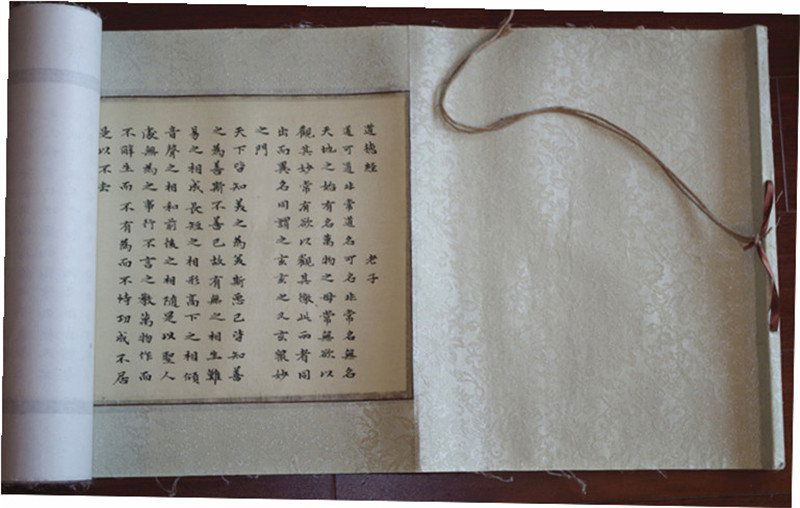 道德經 老子
道可道非常道名可名非常名無名
天地之始有名萬物之母常無欲以
觀其妙常有欲以觀其徼此兩者同
出而異名同謂之玄玄之又玄衆妙
之門
天下皆知美之為美斯惡已皆知善
之為善斯不善已故有無之相生難
易之相成長短之相形高下之相傾
音聲之相和前後之相隨是以聖人
處無為之事行不言之教萬物作而
不辭生而不有為而不恃功成不居
是以不去